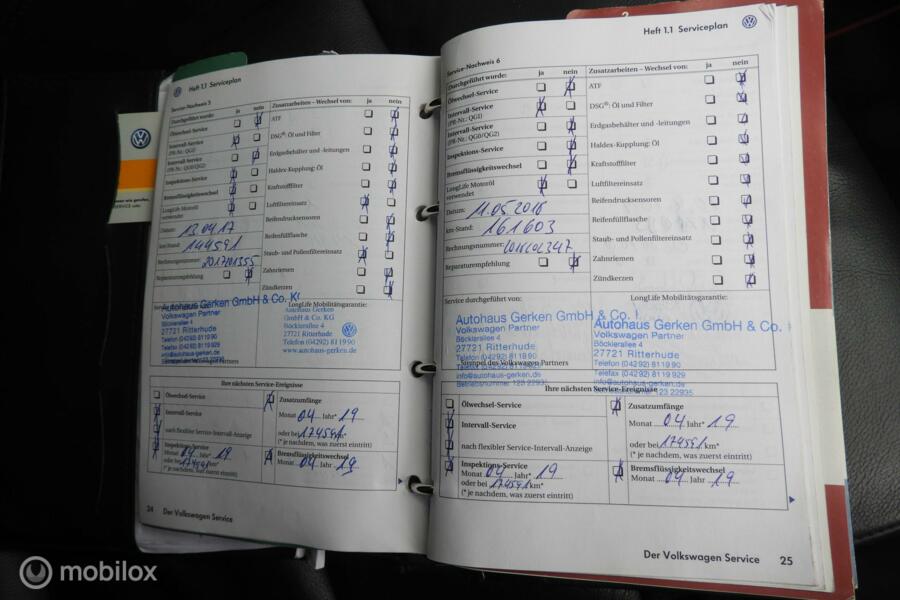 Heft 1.1 Serviceplan
Service-Nachweis 5
Durchgeführt wurde: ja nein
Ölwechsel-Service
Intervall-Service
(PR-Nr.: QG1)
Intervall-Service
(PR-Nr.: QG0/QG2)
Inspektions-Service
Bremsflüssigkeitswechsel
LongLife Motoröl
verwendet
Datum: 13.04.17
km-Stand: 144591
Rechnungsnummer: 2017101355
Reparaturempfehlung
Zusatzarbeiten – Wechsel von: ja nein
ATF
DSG®: Öl und Filter
Erdgasbehälter und -leitungen
Haldex-Kupplung: Öl
Kraftstofffilter
Luftfiltereinsatz
Reifendrucksensoren
Reifenfüllflasche
Staub- und Pollenfiltereinsatz
Zahnriemen
Zündkerzen
Autohaus Gerken GmbH & Co. K
Volkswagen Partner
Böcklerallee 4
27721 Ritterhude
Telefon (04292) 81 19 90
info@autohaus-gerken.de
LongLife Mobilitätsgarantie:
Autohaus Gerken
GmbH & Co. KG
Böcklerallee 4
27721 Ritterhude
Telefon (04292) 81 19 90
www.autohaus-gerken.de
Ihre nächsten Service-Ereignisse
Ölwechsel-Service
Intervall-Service
nach flexibler Service-Intervall-Anzeige
Inspektions-Service
04 Jahr* 19
174591
(* je nachdem, was zuerst eintritt)
Zusatzumfänge
Monat 04 Jahr* 19
oder bei 174591 km*
(* je nachdem, was zuerst eintritt)
Bremsflüssigkeitswechsel
Monat 04 Jahr 19
24 Der Volkswagen Service
2
Heft 1.1 Serviceplan
Service-Nachweis 6
Durchgeführt wurde: ja nein
Ölwechsel-Service
Intervall-Service
(PR-Nr.: QG1)
Intervall-Service
(PR-Nr.: QG0/QG2)
Inspektions-Service
Bremsflüssigkeitswechsel
LongLife Motoröl
verwendet
Datum: 11.05.2018
km-Stand: 161603
Rechnungsnummer:
Reparaturempfehlung
Zusatzarbeiten – Wechsel von: ja nein
ATF
DSG®: Öl und Filter
Erdgasbehälter und -leitungen
Haldex-Kupplung: Öl
Kraftstofffilter
Luftfiltereinsatz
Reifendrucksensoren
Reifenfüllflasche
Staub- und Pollenfiltereinsatz
Zahnriemen
Zündkerzen
Service durchgeführt von:
Autohaus Gerken GmbH & Co.
Volkswagen Partner
Böcklerallee 4
27721 Ritterhude
Telefon (04292) 81 19 90
Stempel des Volkswagen Partners
info@autohaus-gerken.de
Betriebsnummer: 123 22935
LongLife Mobilitätsgarantie:
Autohaus Gerken GmbH & Co.
Volkswagen Partner
Böcklerallee 4
27721 Ritterhude
Telefon (04292) 81 19 90
Telefax (04292) 81 19 929
info@autohaus-gerken.de
123 22935
Ihre nächsten Service-Ereignisse
Ölwechsel-Service
Intervall-Service
nach flexibler Service-Intervall-Anzeige
Inspektions-Service
Monat 04 Jahr* 19
oder bei 174591 km*
(* je nachdem, was zuerst eintritt)
Zusatzumfänge
Monat 04 Jahr* 19
oder bei 174591 km*
(* je nachdem, was zuerst eintritt)
Bremsflüssigkeitswechsel
Monat 04 Jahr 19
Der Volkswagen Service 25
mobilox